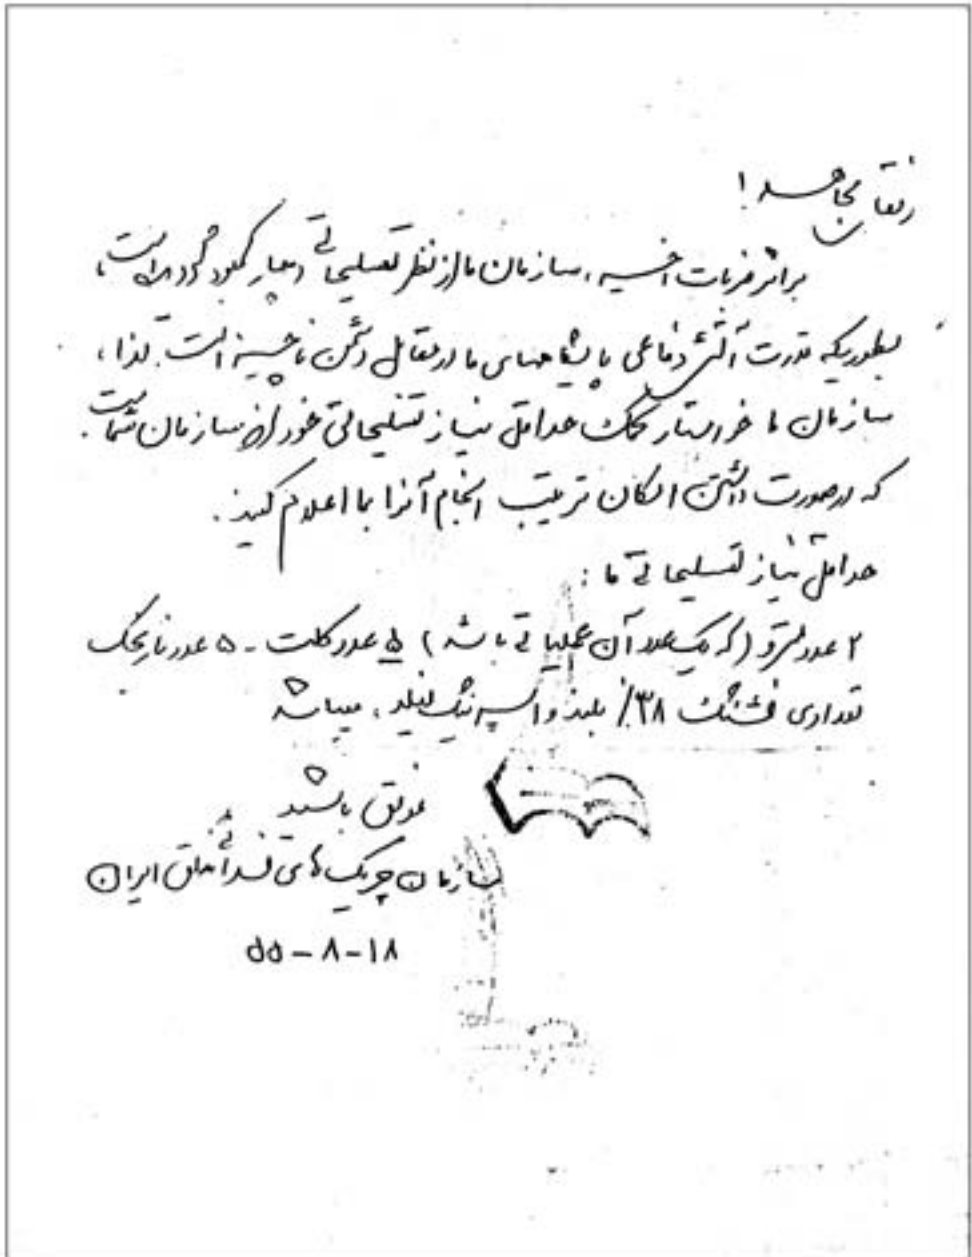 رفقای مجاهد!
براثر ضربات اخیر، سازمان ما از نظر تسلیحاتی دچار کمبود گردیده است،
بطوریکه قدرت آتش دفاعی پایگاههای ما در مقابل دشمن ناچیز است. لذا،
سازمان ما خواستار کمک حداقل نیاز تسلیحاتی خود از سازمان شماست.
که در صورت داشتن امکان ترتیب انجام آنرا بما اعلام کنید.
حداقل نیاز تسلیحاتی ما:
۲ عدد (که یک عدد آن عملیاتی باشد) ۵ عدد کلت - ۵ عدد نارنجک
تعدادی فشنگ ۳۸/ بلند و میباشد
موفق باشید
سازمان چریک های فدائی خلق ایران
۵۵-۸-۱۸